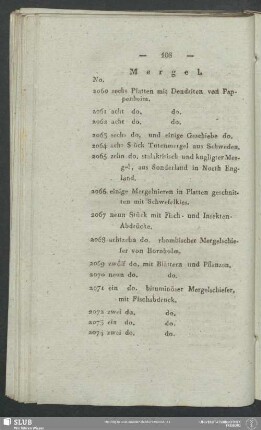 — 108 —
Mergel.
No.
2060 sechs Platten mit Dendriten von Pap-
penheim.
2061 acht do. do.
2062 acht do. do.
2063 sechs do, und einige Geschiebe do.
2064 acht Stück Tutenmergel aus Schweden.
2065 zehn do. stalaktitisch und kugligter Mer-
gel, aus Sonderland in North Eng-
land.
2066 einige Mergelnieren in Platten geschnit-
ten mit Schwefelkies.
2067 neun Stück mit Fisch- und Insekten-
Abdrücke.
2068 achtzehn do. rhombischer Mergelschie-
fer von Bornholm.
2069 zwölf do. mit Blättern und Pflanzen.
2070 neun do. do.
2071 ein do. bituminöser Mergelschiefer,
mit Fischabdruck.
2072 zwei do. do.
2073 ein do. do.
2074 zwei do. do.
SLUB